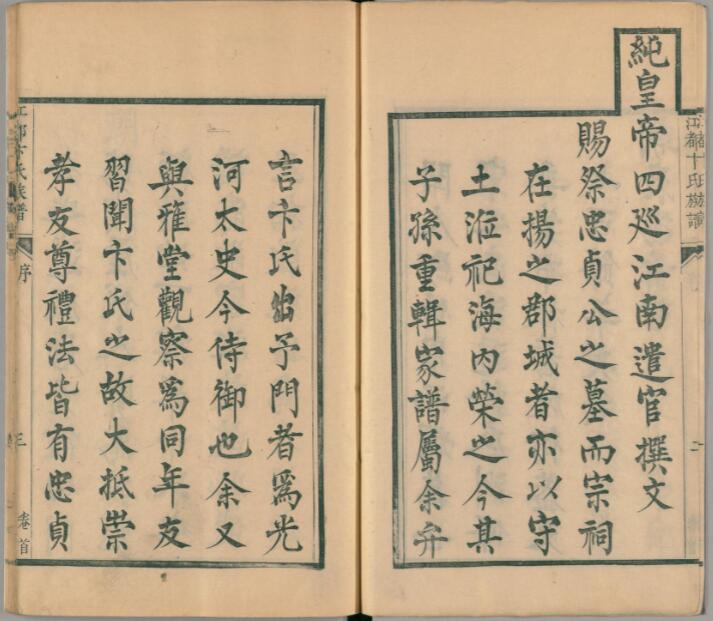 純皇帝四巡江南遣官撰文
賜祭忠貞公之墓而宗祠
在揚之郡城者亦以守
土涖祀海內榮之今其
子孫重輯家譜屬余弁
江都卞氏族譜
二
言卞氏出予門者爲光
河太史今侍御也余又
與雅堂觀察爲同年友
習聞卞氏之故大抵崇
孝友尊禮法皆有忠貞
江都卞氏族譜
序
三
卷首